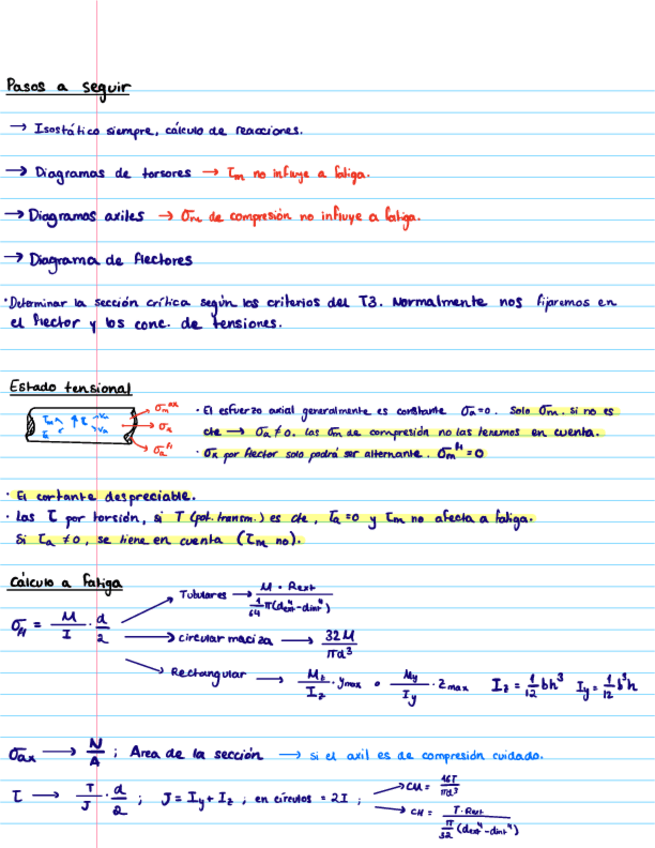 Pasos a seguir
→ Isostático siempre, cálculo de reacciones.
→ Diagramas de torsores → τm no influye a fatiga.
→ Diagramas axiles → σm de compresión no influye a fatiga.
→ Diagrama de flectores
·Determinar la sección crítica según los criterios del T3. Normalmente nos fijaremos en
el flector y los conc. de tensiones.
Estado tensional
σm^ax
σa
σa^fl
· El esfuerzo axial generalmente es constante σa=0. Solo σm. Si no es
cte → σa≠0. Las σm de compresión no las tenemos en cuenta.
· σa por flector solo podrá ser alternante. σm^fl=0
· El cortante despreciable.
· Las τ por torsión, si T (pot. transm.) es cte, τa=0 y τm no afecta a fatiga.
Si τa≠0, se tiene en cuenta (τm no).
Cálculo a fatiga
Tubulares → M · Rext / 1/64 π(dext⁴-dint⁴)
σM = M/I · d/2
→ circular maciza → 32M/πd³
→ Rectangular → Mz/Iz · ymax o My/Iy · zmax Iz = 1/12 bh³ Iy = 1/12 b³h
σax → N/A ; Area de la sección → si el axil es de compresión cuidado.
τ → T/J · d/2 ; J = Iy + Iz ; en círculos = 2I ; → CM = 16T/πd³
→ CH = T·Rext / π/32 (dext⁴-dint⁴)